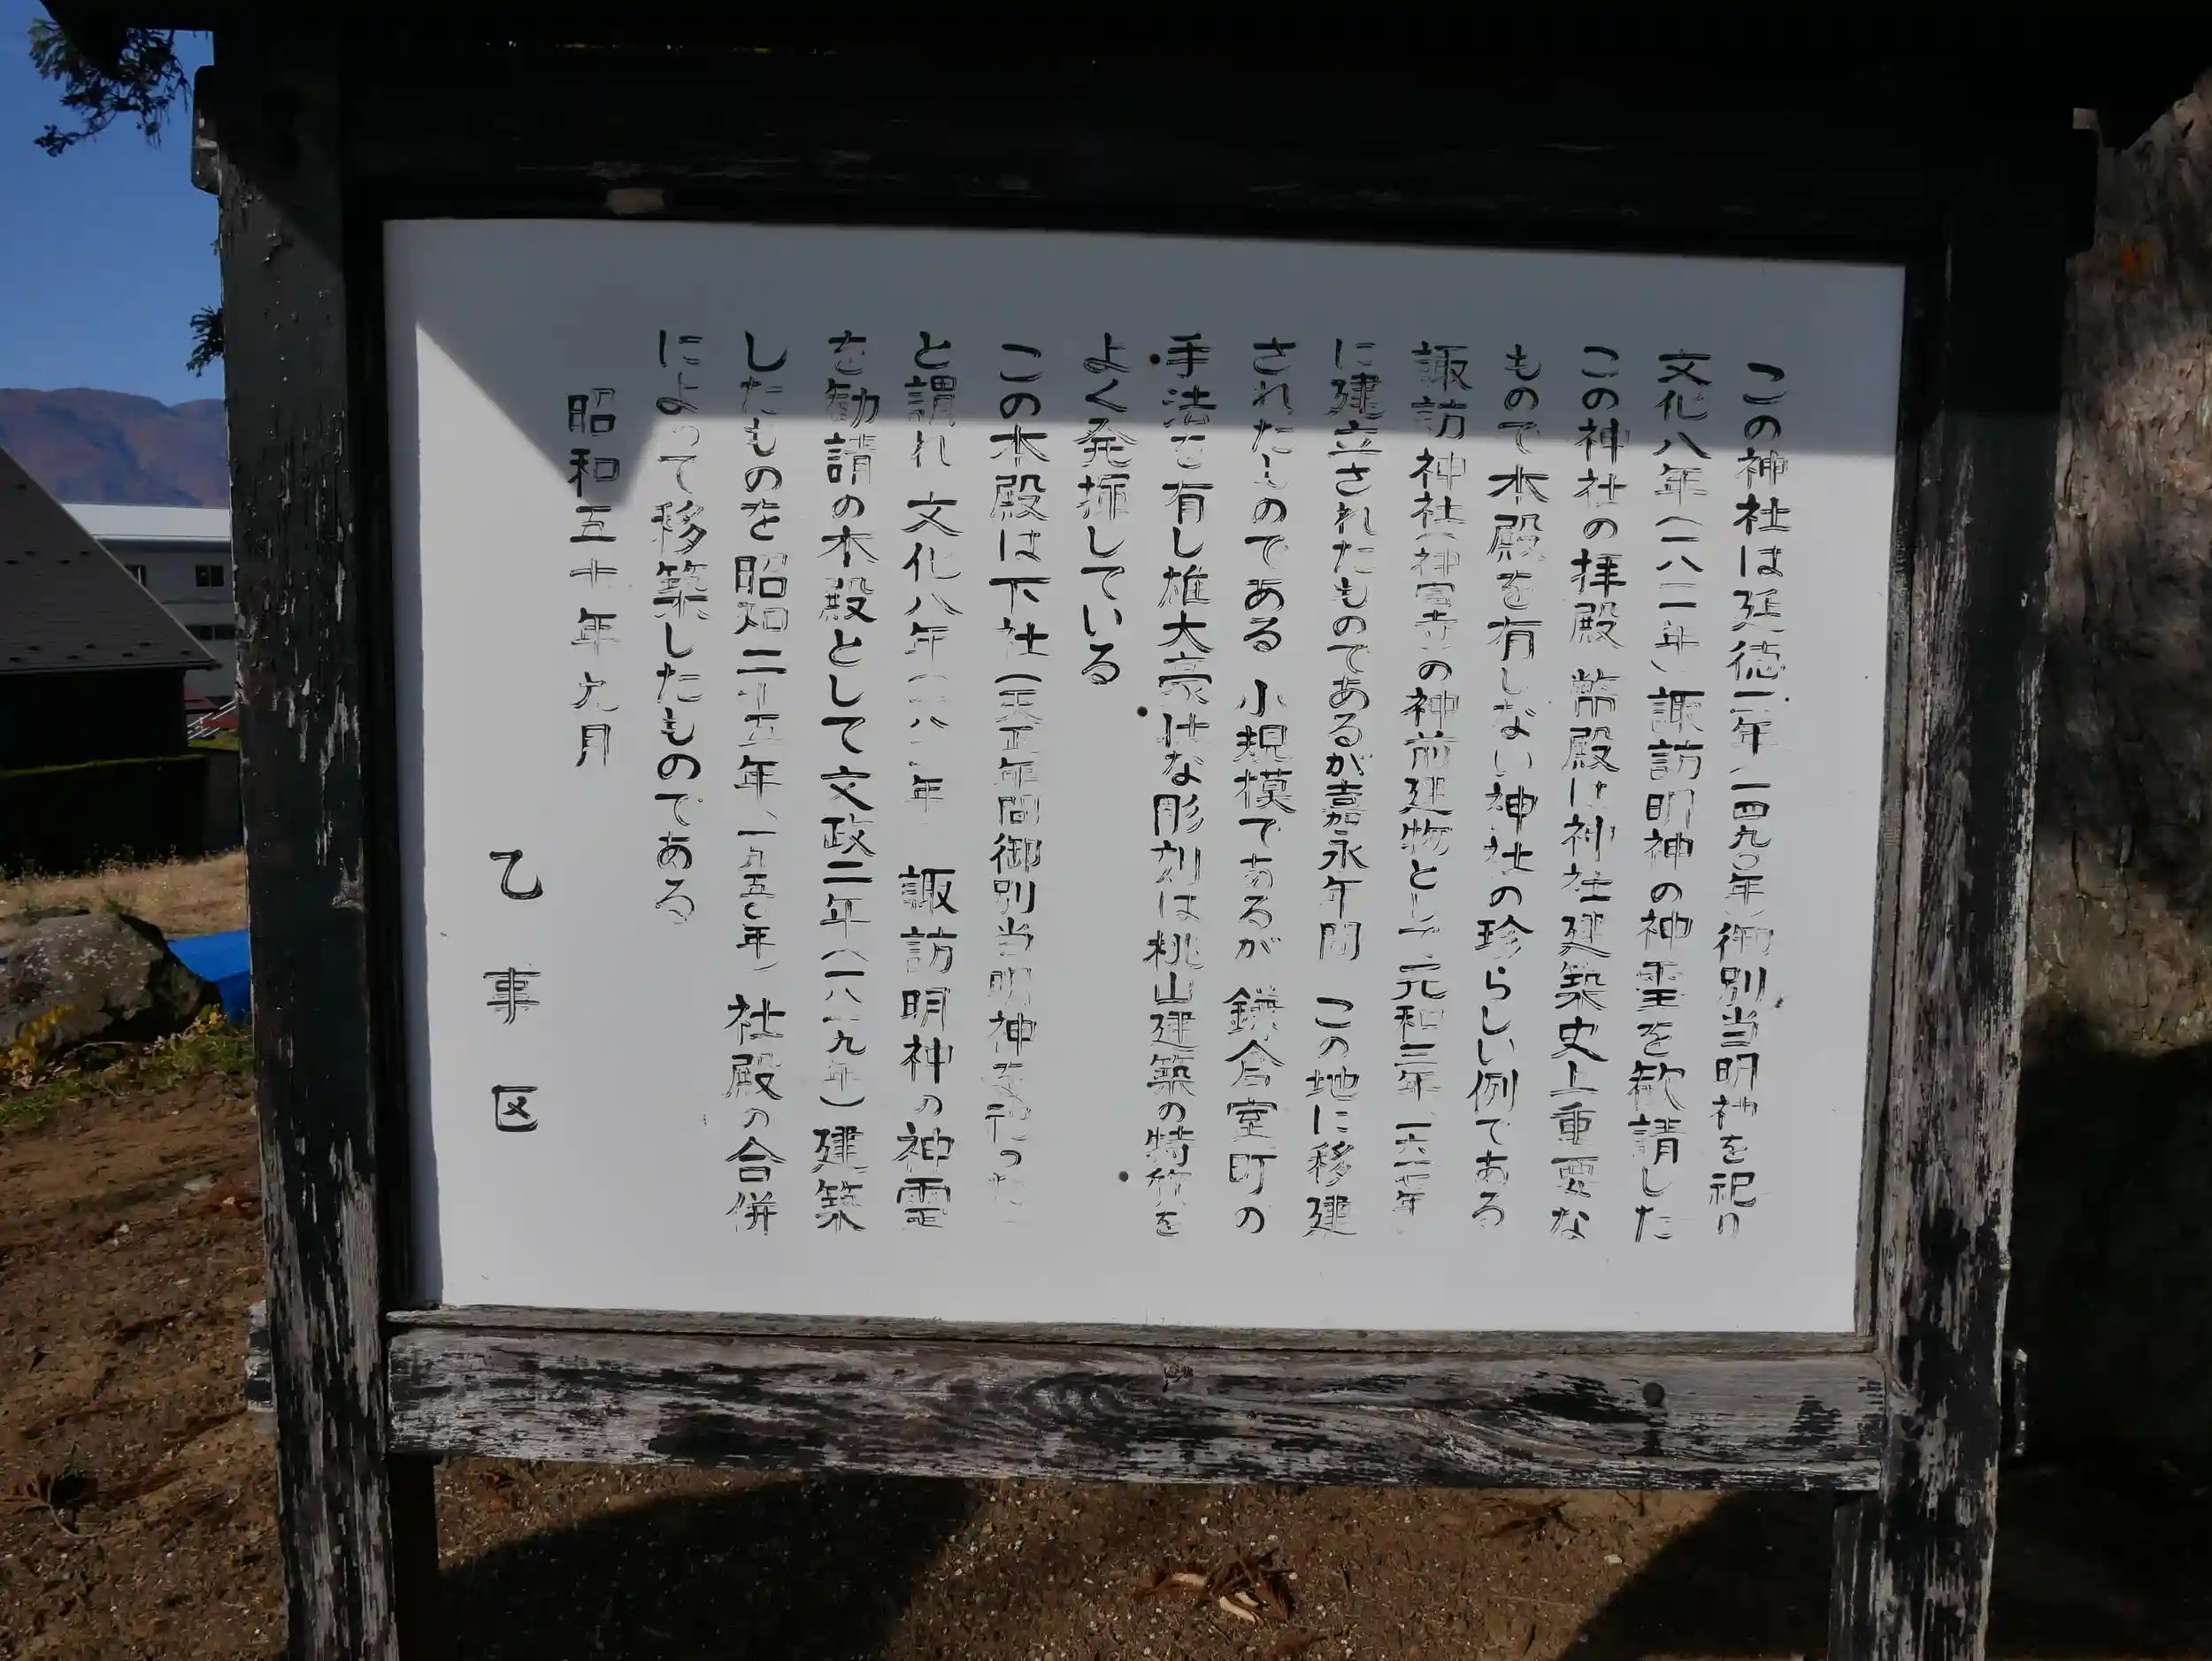 この神社は延徳二年(一四九〇年)御別当明神を祀り
文化八年(一八一一年)諏訪明神の神霊を歓請した
この神社の拝殿 幣殿は神社建築史上重要な
もので本殿を有しない神社の珍らしい例である
諏訪神社(神宮寺)の神前建物として 元和三年(一六一七年)
に建立されたものであるが嘉永年間 この地に移建
されたものである 小規模であるが 鎌倉室町の
手法を有し雄大豪けな彫刻は桃山建築の特徴を
よく発揮している
この本殿は下社(天正年間御別当明神を祀った
と謂れ 文化八年(一八一一年) 諏訪明神の神霊
を勧請の本殿として文政二年(一八一九年)建築
したものを昭和二十五年(一九五〇年)社殿の合併
によって移築したものである
昭和五十年九月
乙事区